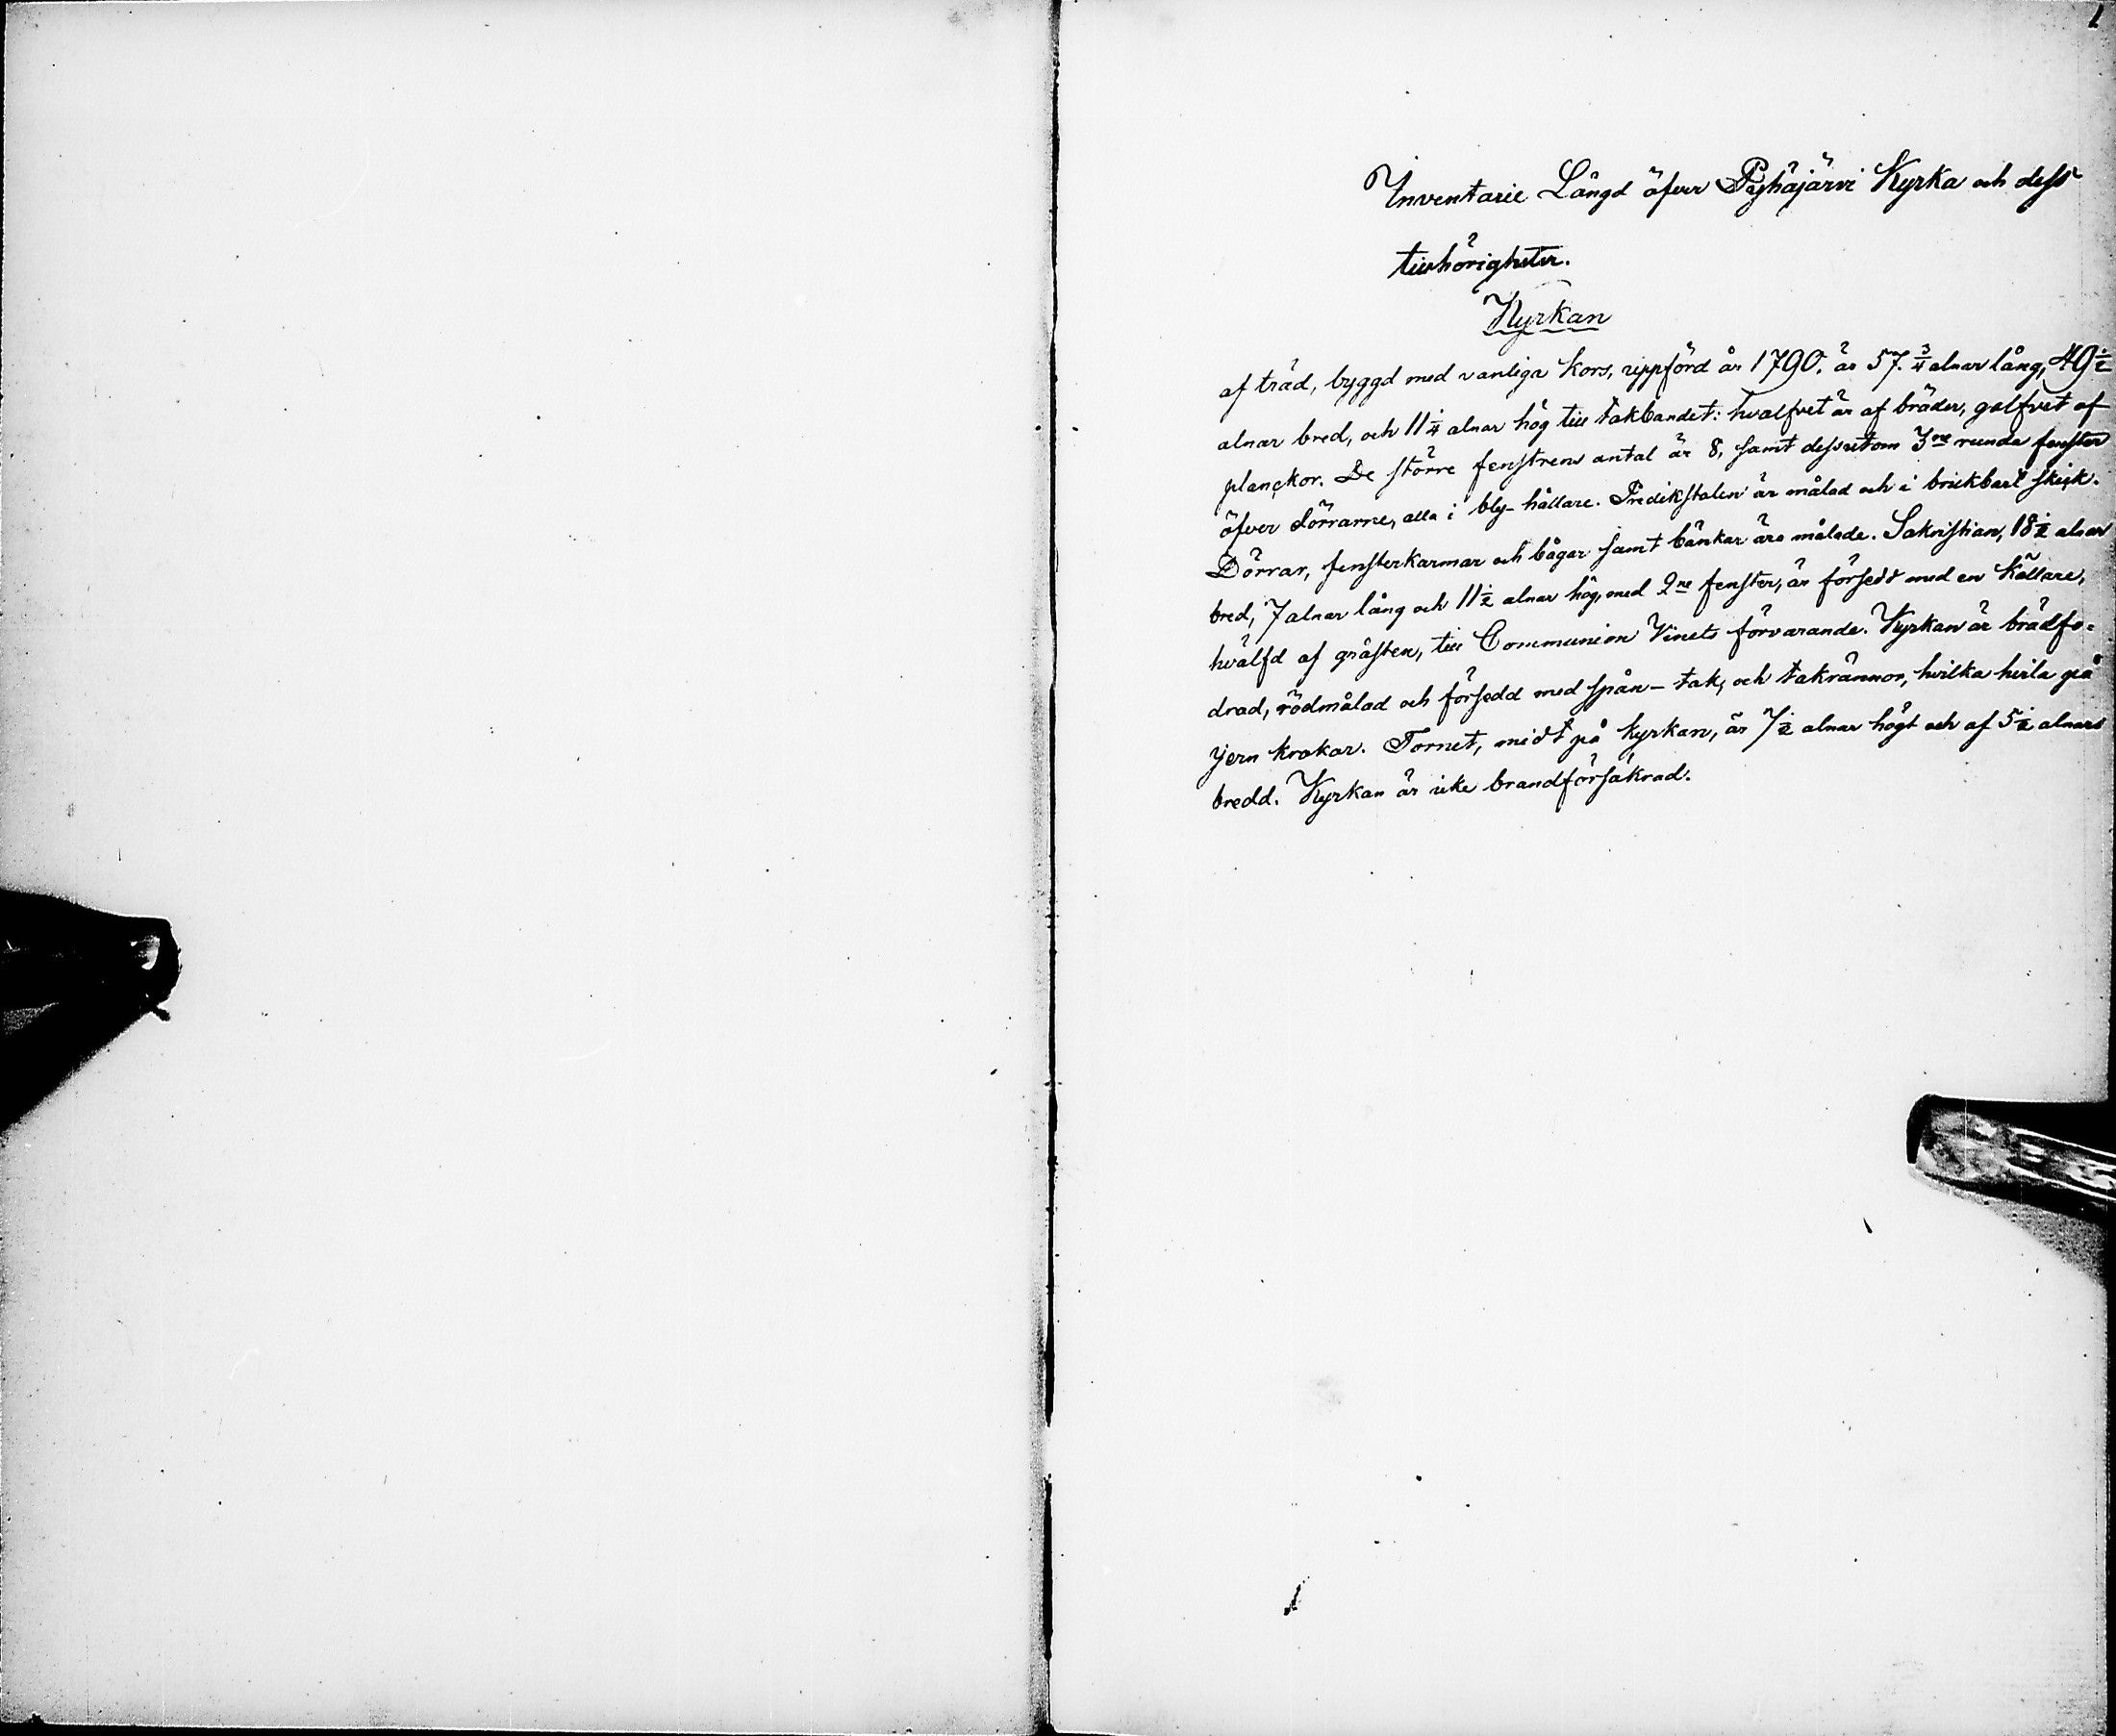 1
Inventarie Längd öfver Pyhäjärvi Kyrka och dess
tillhörigheter.
Kyrkan
af träd, byggd med vanliga kors, uppförd år 1790. är 57. 3/4 alnar lång, 49 1/2
alnar bred, och 11 1/4 alnar hög till takbandet: hvalfvet är af bräder, golfvet af
planckor. De större fenstrens antal är 8, samt dessutom 3ne runda fenster
öfver dörrarne, alla i bly-hållare. Predikstolen är målad och i brukbart skick.
Dörrar, fensterkarmar och bågar samt bänkar äro målade. Sakristian, 18 1/2 alnar
bred, 7 alnar lång och 11 1/2 alnar hög, med 2ne fenster, är försedd med en källare,
hvälfd af gråsten, till Communion Vinets förvarande. Kyrkan är brädfo-
drad, rödmålad och försedd med spån-tak, och takrännor, hvilka hvila på
jern krokar. Tornet, midt på kyrkan, är 7 1/2 alnar högt och af 5 1/2 alnars
bredd. Kyrkan är icke brandförsäkrad.